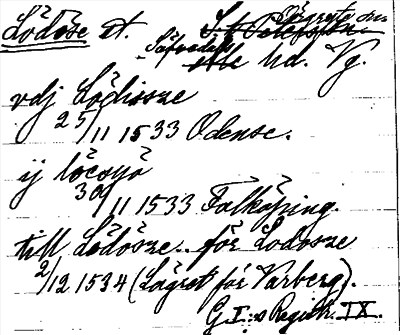 Lödöse st.
Säfvedals hd. Vg.
vdj Lödissze
25/11 1533 Odense.
ij löcsyö
30/11 1533 Falköping.
till Lödösze.. för Lödosze
2/12 1534 (Lägret för Varberg).
G I:s Registr. IX.